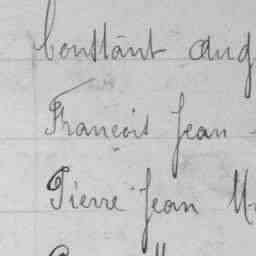 Constant Aug
François Jean
Pierre Jean M